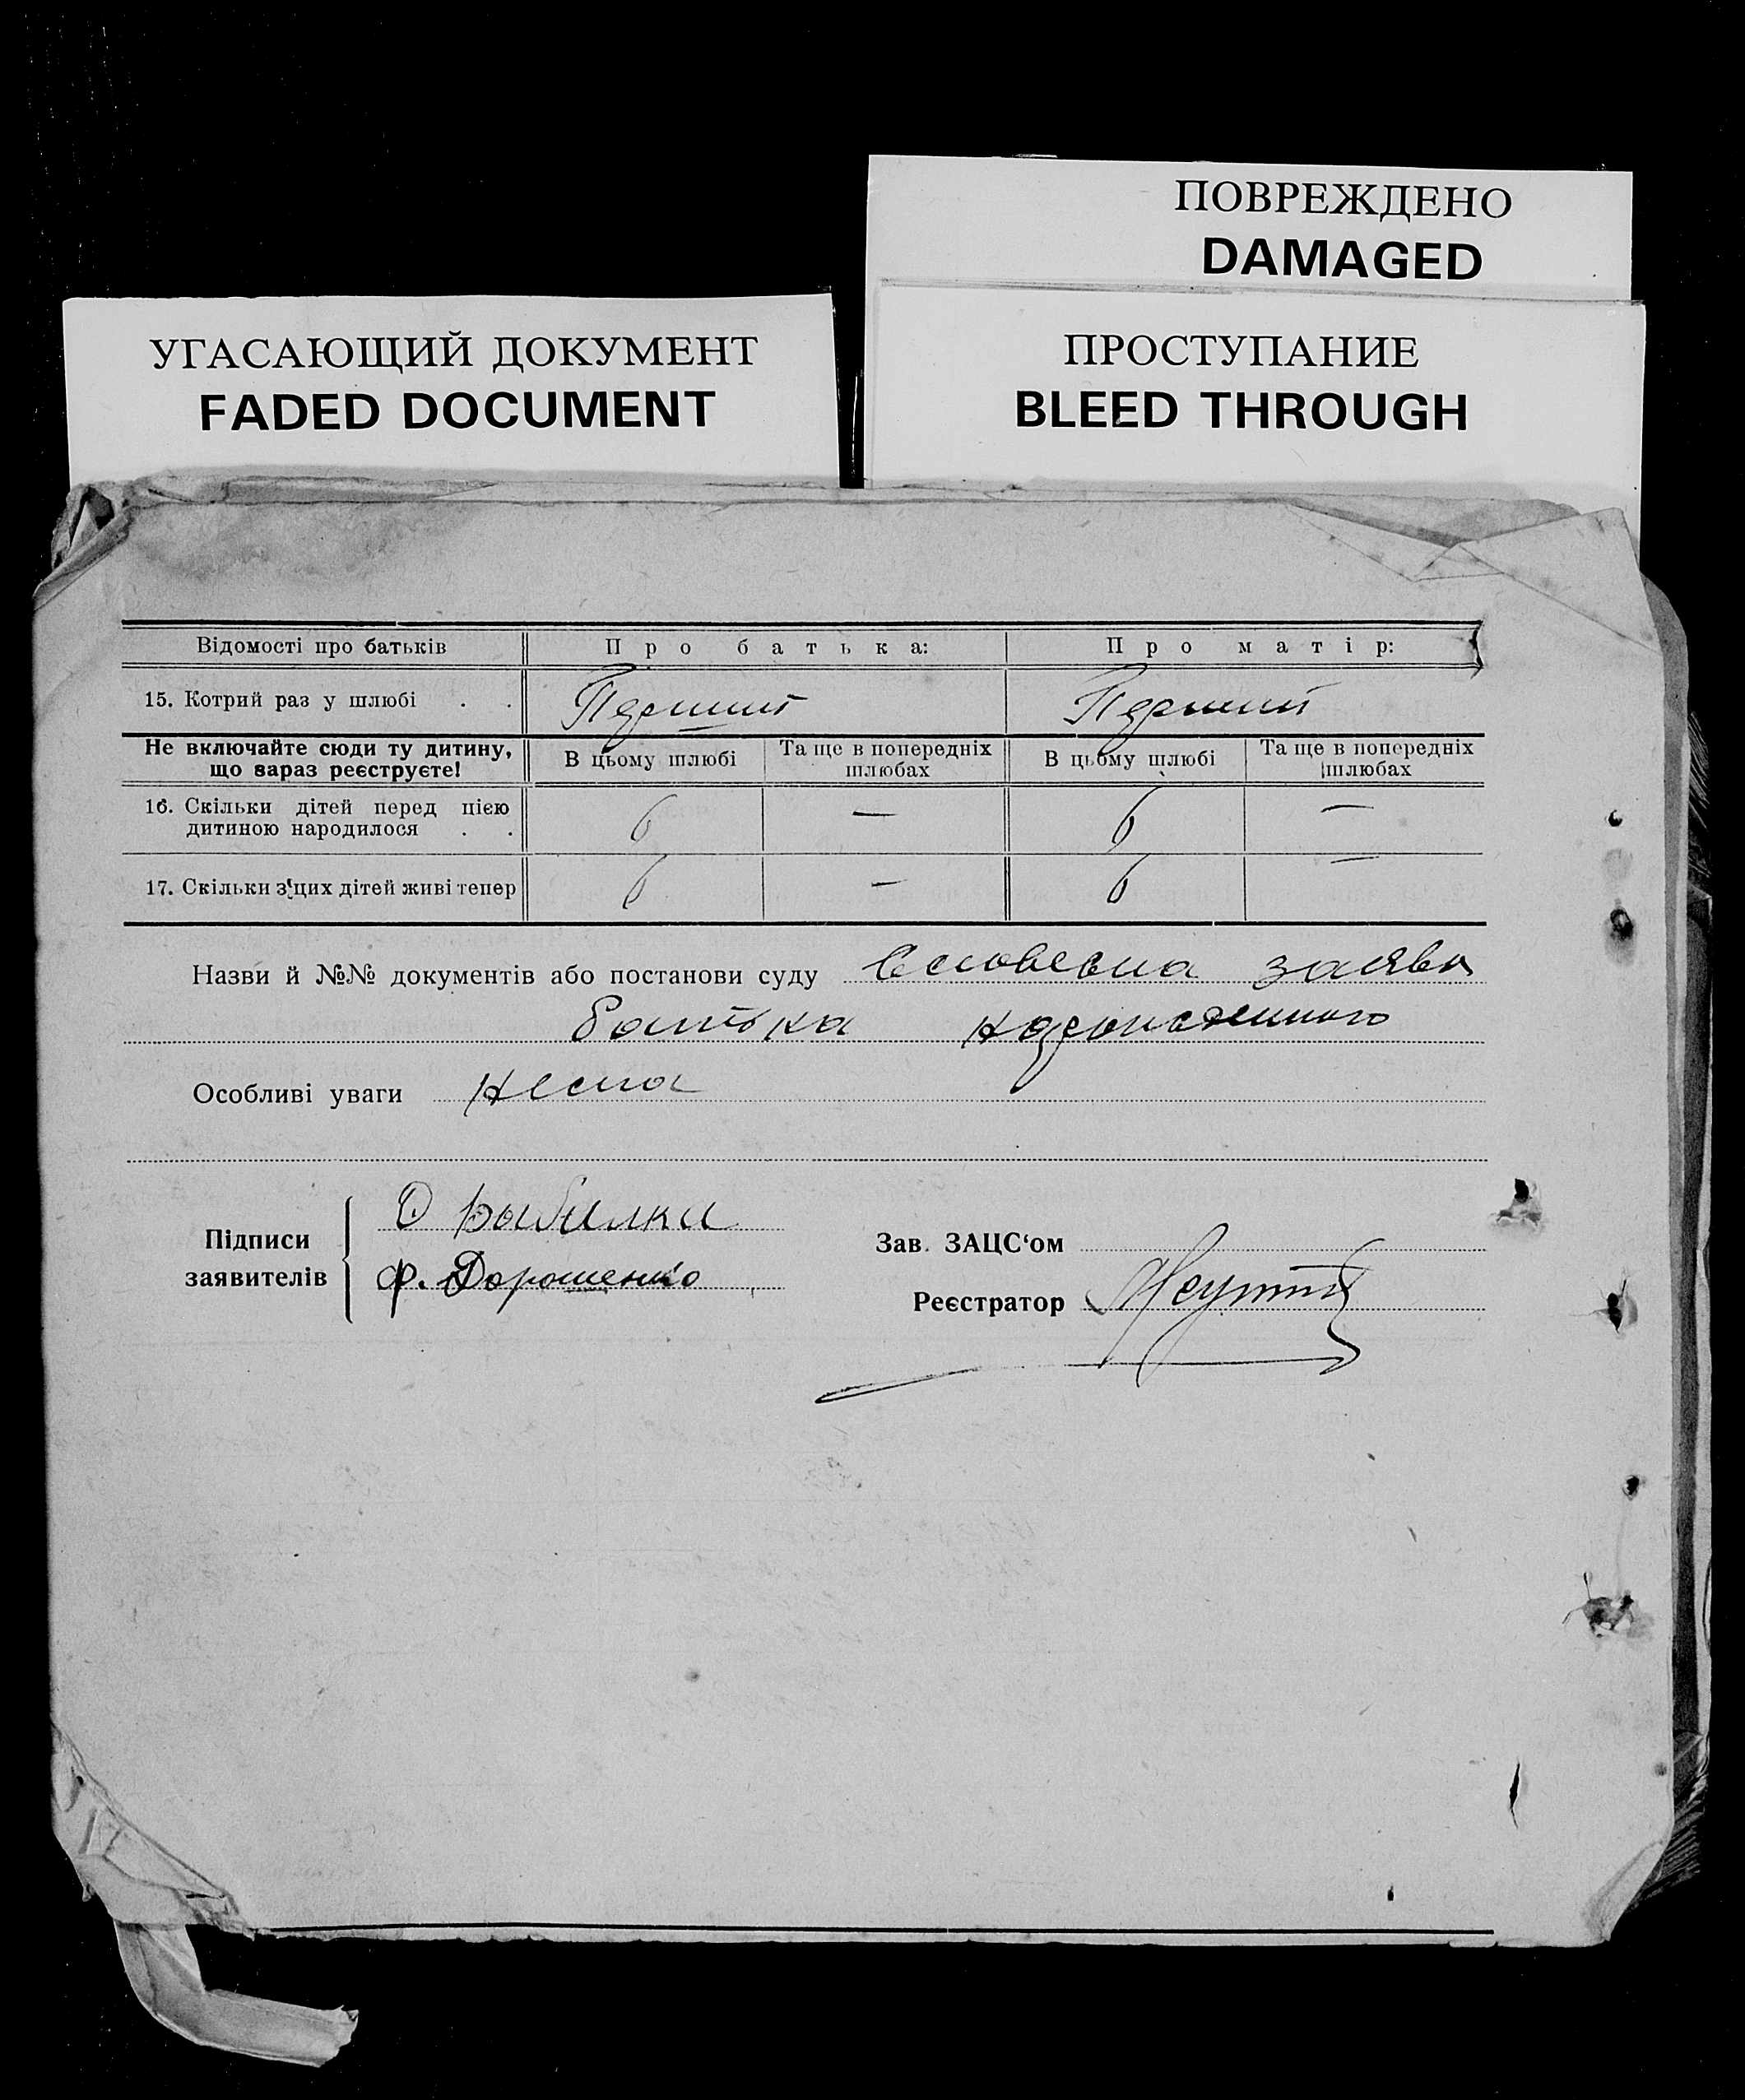 ПОВРЕЖДЕНО
DAMAGED
УГАСАЮЩИЙ ДОКУМЕНТ
FADED DOCUMENT
ПРОСТУПАНИЕ
BLEED THROUGH
Відомості про батьків Про батька: Про матір:
15. Котрий раз у шлюбі . . Перший Перший
Не включайте сюди ту дитину, що зараз реєструєте! В цьому шлюбі Та ще в попередніх шлюбах В цьому шлюбі Та ще в попередніх шлюбах
16. Скільки дітей перед цією дитиною народилося . . 6 — 6 —
17. Скільки з'цих дітей живі тепер 6 — 6 —
Назви й №№ документів або постанови суду Словесна заява
батька
Особливі уваги
Підписи заявителів
Ф. Дорошенко
Зав. ЗАЦС'ом
Реєстратор